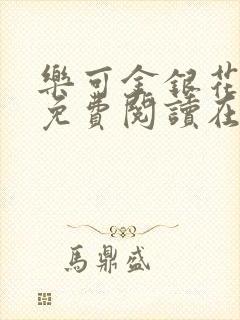 樂可金銀花
免費閱讀在
馬鼎盛